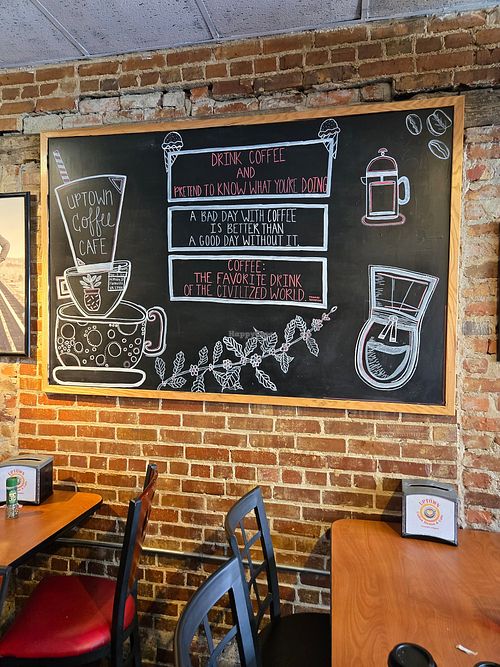 DRINK COFFEE
AND
PRETEND TO KNOW WHAT YOU'RE DOING
A BAD DAY WITH COFFEE
IS BETTER THAN
A GOOD DAY WITHOUT IT.
COFFEE:
THE FAVORITE DRINK
OF THE CIVILIZED WORLD.
UPTOWN
Coffee
CAFE
UPTOWN